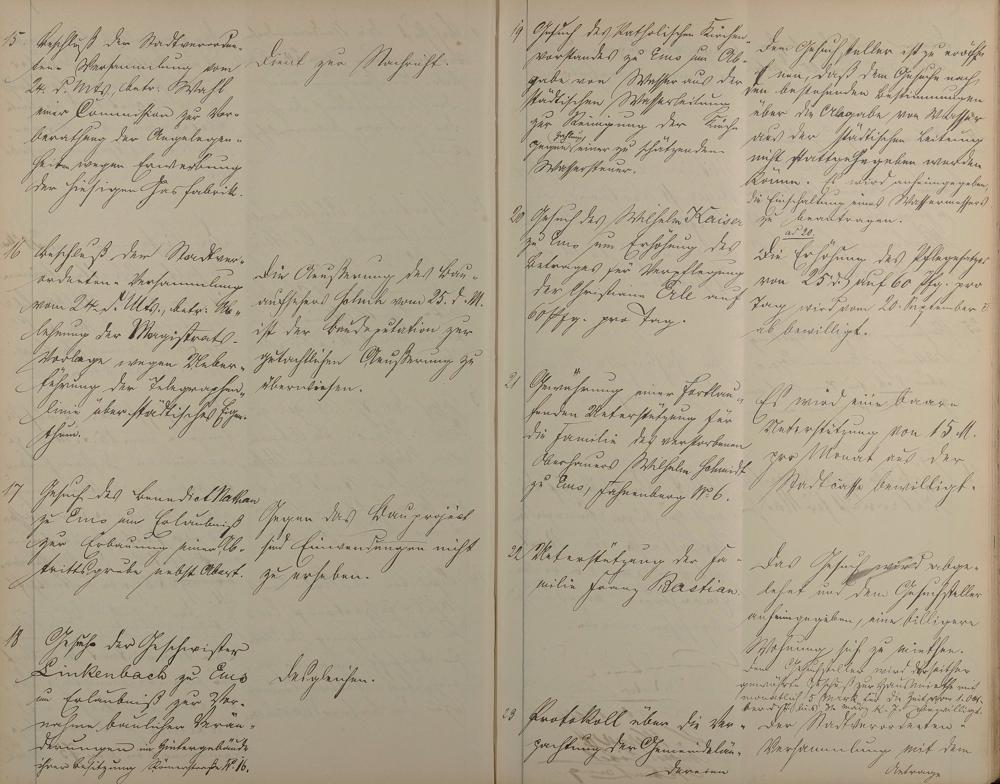 15 Beschluß der Stadtverordne-
ten-Versammlung vom
24. d. Mts., betr. Wahl
einer Commission zur Vor-
berathung der Angelegen-
heit wegen Erwerbung
der hiesigen Gasfabrik.
Dient zur Nachricht.
16 Beschluß der Stadtver-
ordneten-Versammlung
vom 24. d. Mts., betr. Ab-
lehnung der Magistrats-
Vorlage wegen Ueber-
führung der Telegraphen-
linie über städtisches Eigen-
thum.
Die Aeußerung des Bau-
aufsehers vom 25. d. M.
ist der Baudeputation zur
gutachtlichen Aeußerung zu
überweisen.
17 Gesuch des Benedict Nathan
zu Ems um Erlaubniß
zur Erbauung einer Ab-
trittsgrube nebst Abort.
Gegen das Bauproject
sind Einwendungen nicht
zu erheben.
18 Gesuch der Geschwister
Linkenbach zu Ems
um Erlaubniß zur Vor-
nahme baulicher Verän-
derungen im Hintergebäude
ihrer Besitzung Römerstraße No. 16.
Desgleichen.
19 Gesuch des Katholischen Kirchen-
vorstandes zu Ems um Ab-
gabe von Wasser aus der
städtischen Wasserleitung
zur Reinigung der Kirche
gegen einer zu schätzenden
Wassersteuer.
Dem Gesuchsteller ist zu eröff-
nen, daß dem Gesuche nach
den bestehenden Bestimmungen
über die Abgabe von Wasser
aus der städtischen Leitung
nicht stattgegeben werden
könne. Es wird anheimgegeben,
die Einschaltung eines Wassermessers
zu beantragen.
20 Gesuch des Wilhelm Kaiser
zu Ems um Erhöhung des
Betrages für Verpflegung
der Christiane Erle auf
60 Pfg. pro Tag.
ad 20.
Die Erhöhung des Pflegesatzes
von 25 auf 60 Pfg. pro
Tag wird vom 20. September
ab bewilligt.
21 Gewährung einer fortlau-
fenden Unterstützung für
die Familie des verstorbenen
Oberhauers Wilhelm Schmidt
zu Ems, Fahnenberg No 6.
Es wird eine baare
Unterstützung von 15 M.
pro Monat aus der
Stadtcasse bewilligt.
22 Unterstützung der Fa-
milie Franz Bastian.
Das Gesuch wird abge-
lehnt und dem Gesuchsteller
anheimgegeben, eine billigere
Wohnung sich zu miethen.
Dem Gesuchsteller wird der seither
gewährte Zuschuß zur Hausmiethe mit
monatlich 5 Mark für die Zeit vom 1. Oct.
23 Protokoll über die Ver-
pachtung der Gemeindelän-
dereien
Der Stadtverordneten-
Versammlung mit dem
Antrage